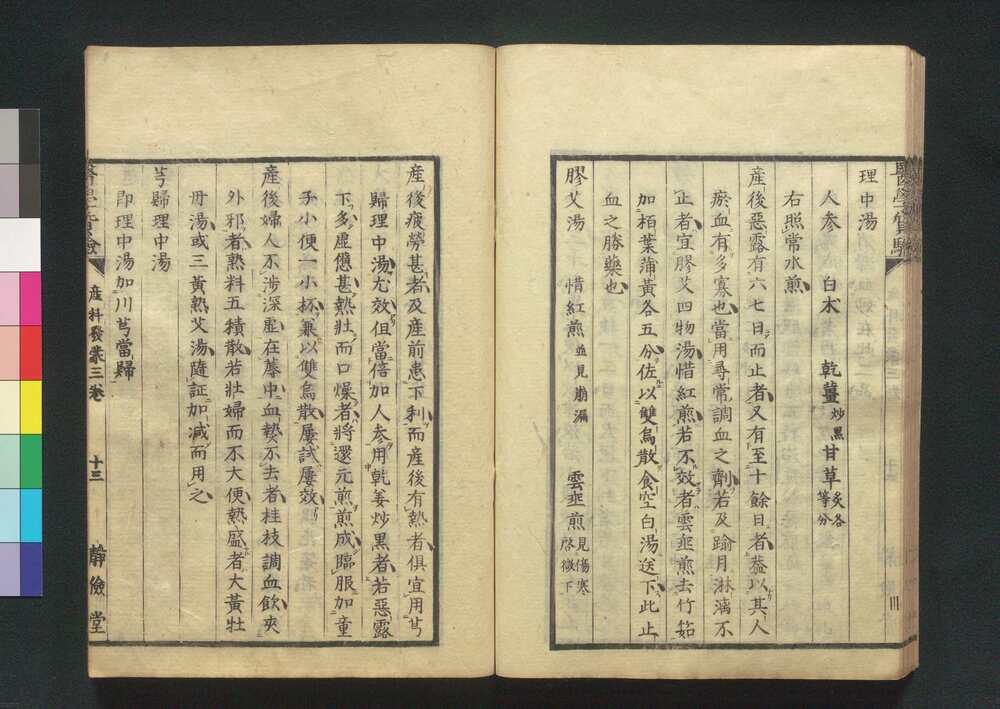 理中湯
人参 白朮 乾薑炒黒甘草炙各等分
右照常水煎
産後惡露有六七日而止者又有至十餘日者葢以其人
瘀血有多寡也當用尋常調血之劑若及踰月淋漓不
止者宜膠艾四物湯惜紅煎若不效者雲韭煎去竹筎
加栢葉蒲黃各五分佐以雙烏散食空白湯送下此止
血之勝藥也
膠艾湯 惜紅煎並見崩漏 雲韭煎見傷寒啓微下
産後疲勞甚者及産前患下利而産後有熱者俱宜用芎
歸理中湯尤效但當倍加人参用乾姜炒黒者若惡露
下多虛憊甚熱壯而口燥者將還元煎煎成臨服加童
子小便一小杯兼以雙烏散屢試屢效
産後婦人不涉深虛在蓐中血𤏋不去者桂枝調血飲夾
外邪者熟料五積散若壯婦而不大便熱盛者大黃牡
丹湯或三黃熟艾湯隨証加减而用之
芎歸理中湯
即理中湯加川芎當歸
産科發蒙三卷 十三 靜儉堂